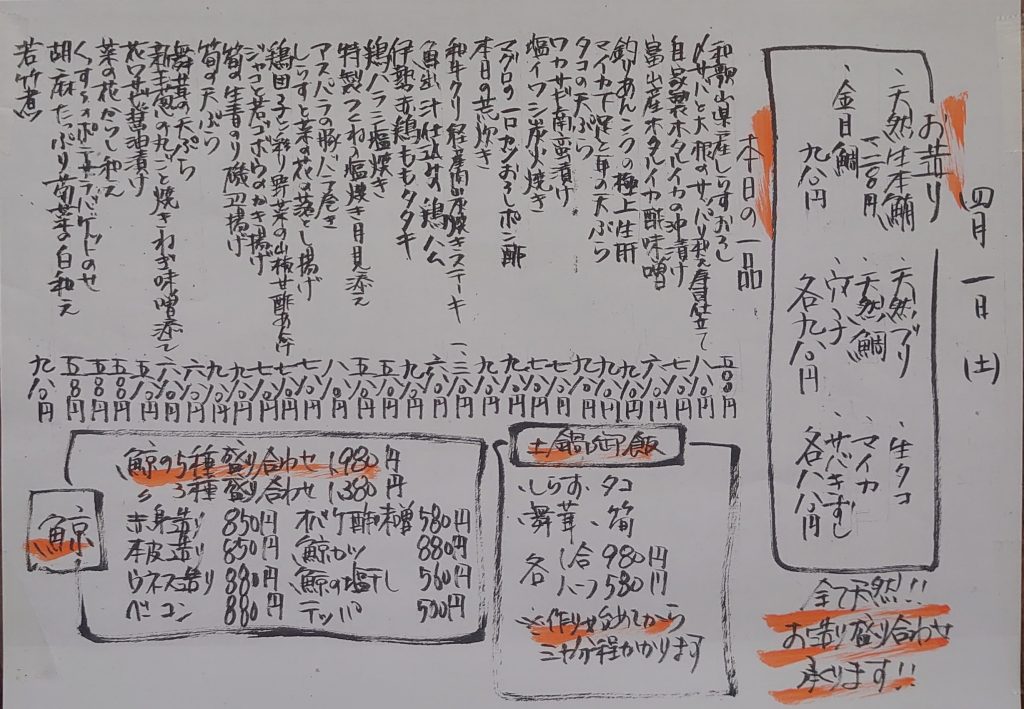 四月一日(土)
お造り
、天然生本鮪
一二八〇円
、金目鯛
九八〇円
、天然ブリ
、天然鯛
、ウニ
各九八〇円
、生タコ
、マイカ
、サバきずし
各八八〇円
全て天然!!
お造り盛り合わせ
承ります!!
本日の一品
和歌山県産しらすおろし 五八〇円
〆サバと大根のサッパリ和え寿司仕立て 八八〇円
自家製ホタルイカの沖漬け 七八〇円
富山産ホタルイカ酢味噌 六八〇円
釣りあんこうの極上生肝 九八〇円
マイカ下足と耳の天ぷら 九八〇円
タコの天ぷら 九八〇円
ワカサギ南蛮漬け 七八〇円
塩イワシ炭火焼き 七八〇円
マグロのトロカシおろしポン酢 九八〇円
本日の荒炊き 九八〇円
和牛クリ 炭火焼きステーキ 一、
魚出汁仕込みの鶏ハム 六八〇円
伊勢赤鶏ももタタキ 九八〇円
鶏ハラミ塩焼き 五八〇円
特製つくね塩焼き月見添え 五八〇円
アスパラの豚バラ巻き 八八〇円
しらすと菜の花の落とし揚げ 七八〇円
鶏団子と彩り野菜の山椒甘酢あん 七八〇円
ジャコと若ゴボウのかき揚げ 七八〇円
筍の生青のり磯辺揚げ 九八〇円
筍の天ぷら 九八〇円
舞茸の天ぷら 六八〇円
新玉葱の丸ごと焼きねぎ味噌添え 六八〇円
花わさび醤油漬け 五八〇円
菜の花からし和え 五八〇円
くずし ポテサラバゲットのせ 五八〇円
胡麻たっぷり菊菜の白和え 五八〇円
若竹煮 九八〇円
土鍋御飯
、しらす、タコ
、舞茸、筍
各 一合 980円
ハーフ 580円
※作り始めてから
三十分程かかります
鯨
鯨の5種盛り合わせ 1,980円
〃 3種盛り合わせ 1,380円
赤身造り 850円
本皮造り 850円
ウネス造り 880円
ベーコン 880円
オバケ酢味噌 580円
鯨カツ 880円
鯨の塩干し 560円
テッパ 500円